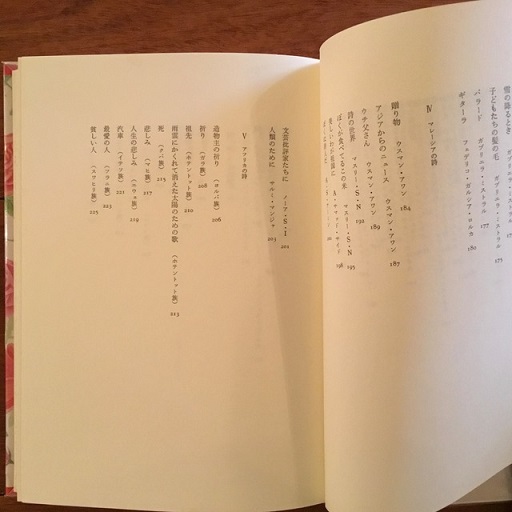 雪の降るとき ガブリエラ・ミストラル 175
子どもたちの髪の毛 ガブリエラ・ミストラル
バラード ガブリエラ・ミストラル 177
ギターラ フェデリコ・ガルシア・ロルカ 180
Ⅳ マレーシアの詩
贈り物 ウスマン・アワン 184
アジアからのニュース ウスマン・アワン 187
ウチ父さん ウスマン・アワン 189
詩の世界 マスリー・S・N 192
ぼくが食べてるこの米 マスリー・S・N 195
美しいわが祖国に A・サマッド・サイド 198
文芸批評家たちに ノーア・S・I 201
人類のために サルミ・マンジャ 203
Ⅴ アフリカの詩
造物主の祈り (ヨルバ族) 206
祈り (ガラ族) 208
祖先 (ホッテントット族) 210
雨雲にかくれて消えた太陽のための歌 (ホッテントット族) 213
死 (クバ族) 215
悲しみ (マヒ族) 217
人生の悲しみ (ホウェ族) 219
汽車 (イワッ族) 221
最愛の人 (フラニ族) 223
貧しい人 (スワヒリ族) 225